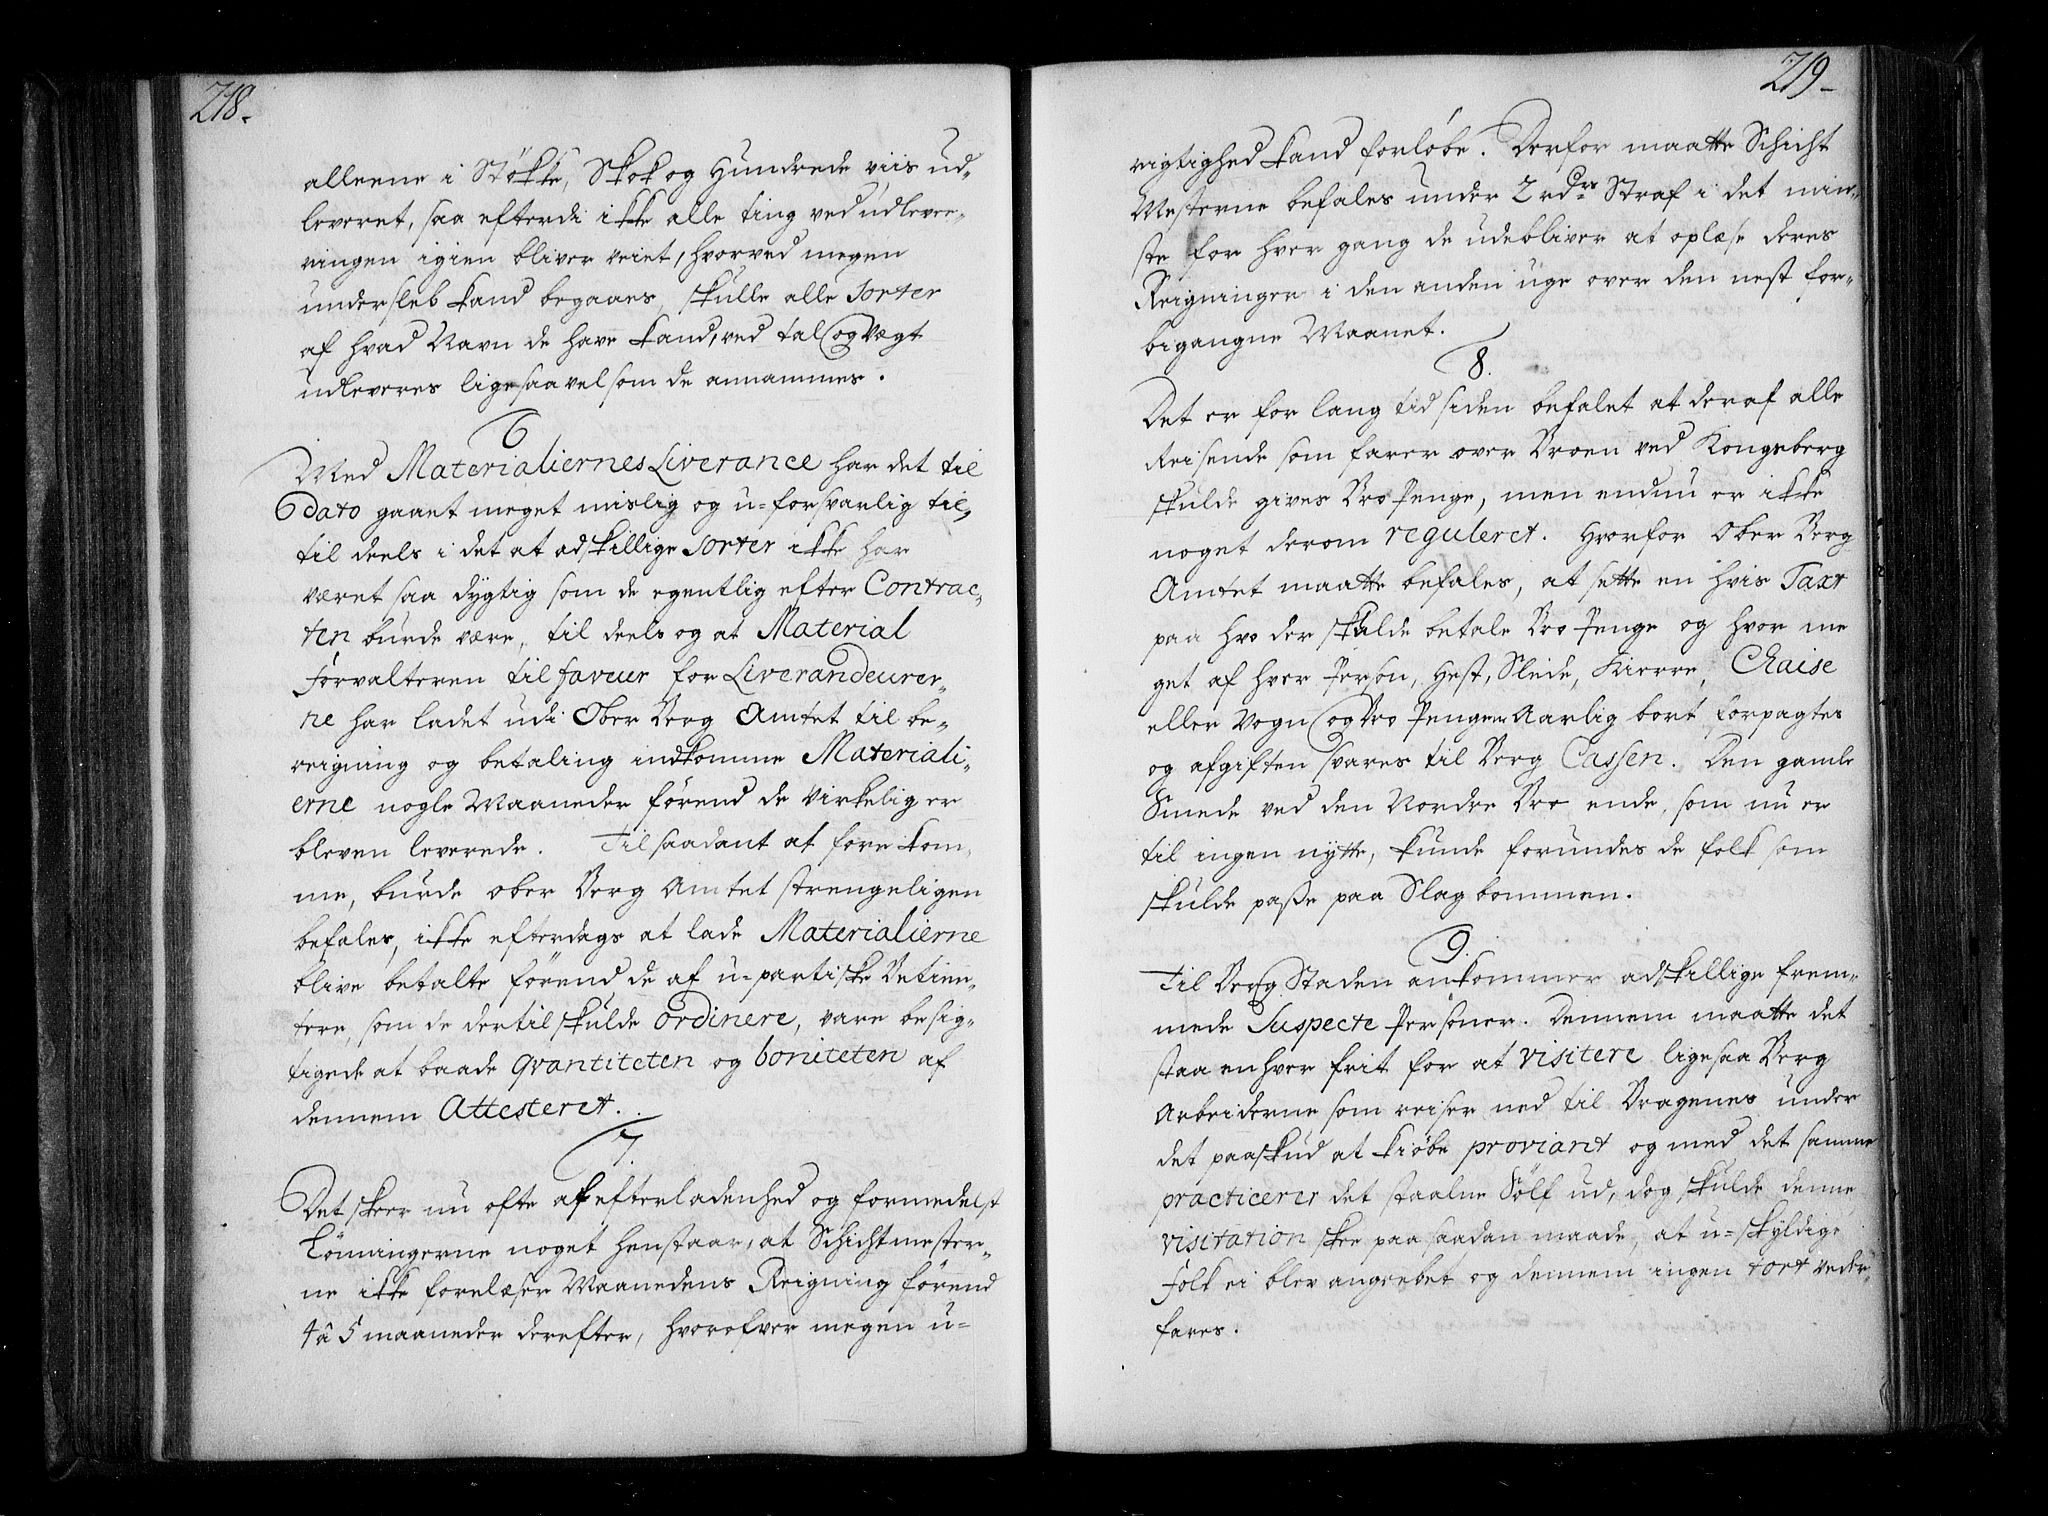 218.
alleene i Støkke, Skok og Hundrede viis ud-
leveret, saa efterdi ikke alle ting ved udlevee-
ringen igien bliver veiet, hvorved megen
undersleb kand begaaes, skulle alle Sorter
af hvad Navn de have kand, ved tal og Vegt
udleveres ligesaavel som de annammes.
6
Med Materialiernes Liverance har det til
dato gaaet meget mislig og u-forsvarlig til,
til deels i det at adskillige Sorter ikke har
været saa dygtig som de egentlig efter Contrac-
ten burde være, til deels og at Material
Forvalteren til faveur for Liverandeurer-
ne har ladet udi Ober Berg Amtet til be-
reigning og betaling indkomme Materiali-
erne nogle Maaneder førend de virkelig er
bleven leverede. Til saadant at forekom-
me, burde ober Berg Amtet strengeligen
befales, ikke efterdags at lade Materialierne
blive betalte førend de af u-partiske Betien-
tere, som de dertil skulde ordinere, vare besig-
tigede at baade qvantiteten og boniteten af
dennem Attesteret.
7.
Det skeer nu ofte af efterladenhed og formedelst
Lønningerne noget henstaar, at Schichtmester-
ne ikke forelæser Maanedens Reigning førend
4 â 5 maaneder derefter, hvorofver megen u-
219
rigtighed kand forløbe. Derfor maatte Schicht
Mesterne befales under 2 rdrs Straf i det min-
ste for hver gang de udebliver at oplæse deres
Reigninger i den anden uge over den nest for-
bigangne Maanet.
8.
Det er for lang tid siden befalet at deraf alle
Reisende som farer over Broen ved Kongsberg
skulde gives Bro Penge, men endnu er ikke
noget derom reguleret. Hvorfor Ober Berg
Amtet maatte befales, at sette en vis Taxt
paa hvo der skulde betale Bro Penge og hvor me
get af hver Person, Hest, Slede, Kierre, Chaise
eller Vogn og Bro Pengene Aarlig bort forpagtes
og afgiften svares til Berg Cassen. Den gamle
Smede ved den Nordre Bro ende, som nu er
til ingen nytte, kunde forundes de folk som
skulde passe paa Slagbommen.
9.
Til Berg Staden ankommer adskillige frem-
mede Suspecte Personer. Dennem maatte det
staa enhver frit for at visitere ligesaa Berg
Arbeiderne som reiser ned til Bragenes under
det paaskud at kiøbe proviant og med det samme
practicerer det staalne Sølf ud, dog skulde denne
visitation skee paa saadan maade, at u-skyldige
folk ei blev angrebet og dennem ingen tort veder-
fares.